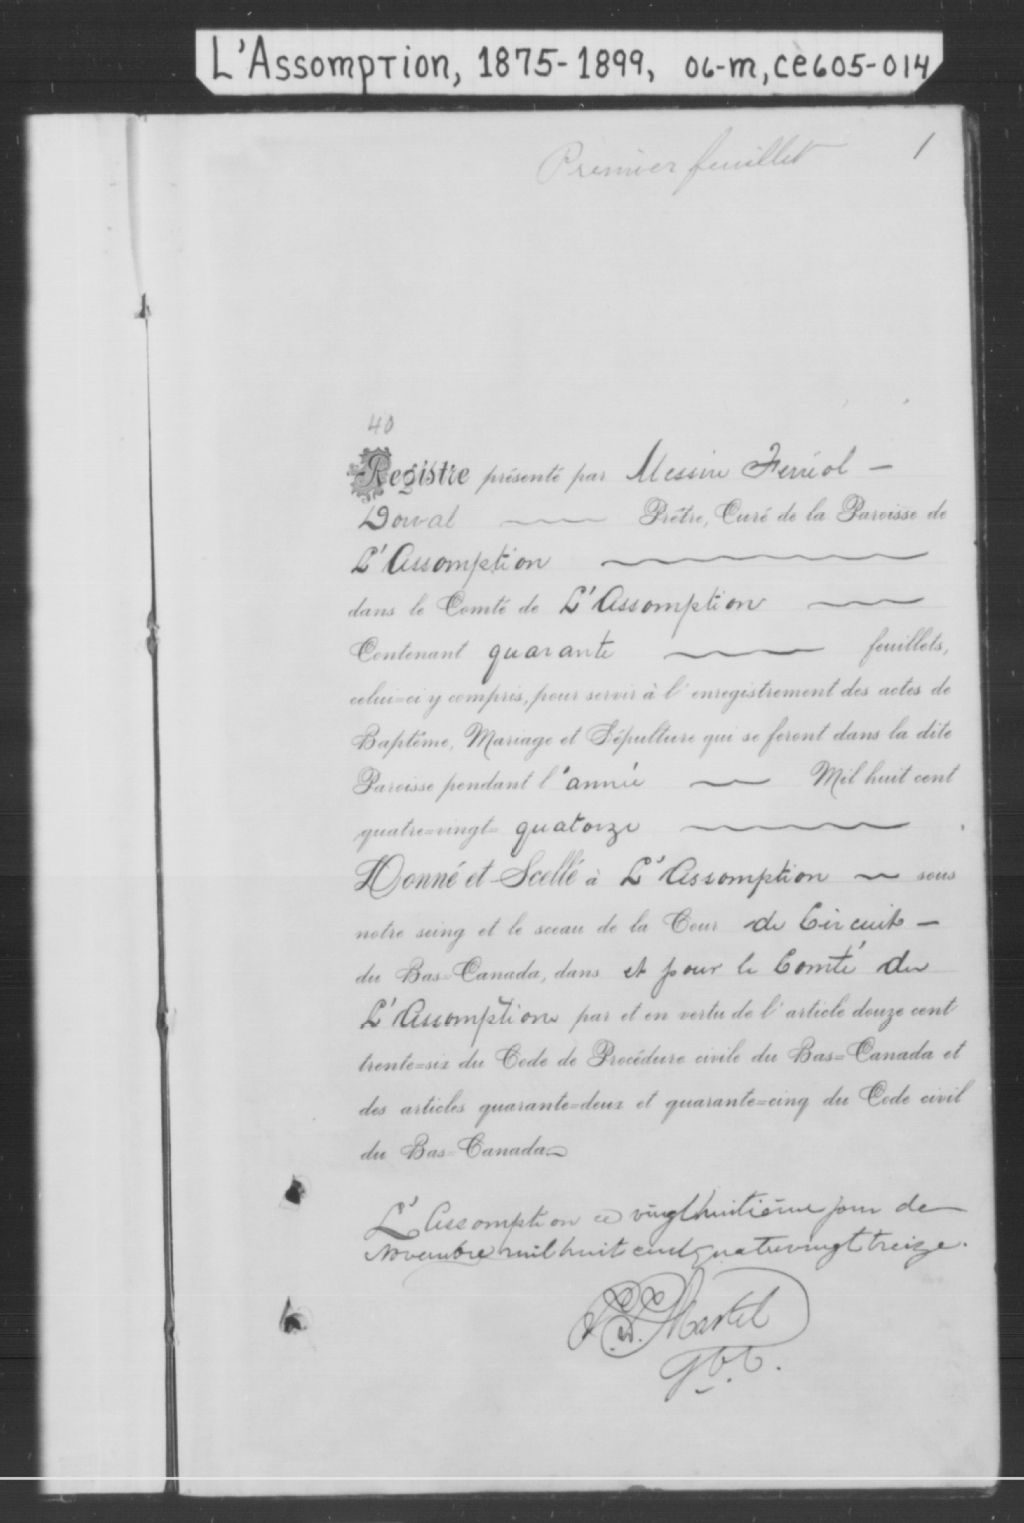 L'Assomption, 1875-1899, 06-m, ce605-014
Premier feuillet
1
40
Registre présenté par Messire Ferréol —
Dorval Prêtre, Curé de la Paroisse de
L'Assomption
dans le Comté de L'Assomption
Contenant quarante feuillets,
celui=ci y compris, pour servir à l'enregistrement des actes de
Baptême, Mariage et Sépulture qui se feront dans la dite
Paroisse pendant l'année Mil huit cent
quatre=vingt= quatorze
Donné et Scellé à L'Assomption — sous
notre seing et le sceau de la Cour de Circuit —
du Bas=Canada, dans et pour le Comté de
L'Assomption par et en vertu de l'article douze cent
trente=six du Code de Procédure civile du Bas=Canada et
des articles quarante=deux et quarante=cinq du Code civil
du Bas=Canada
L'Assomption ce vingt huitième jour de
Novembre mil huit cent quatre vingt treize.
Martel
G.C.C.